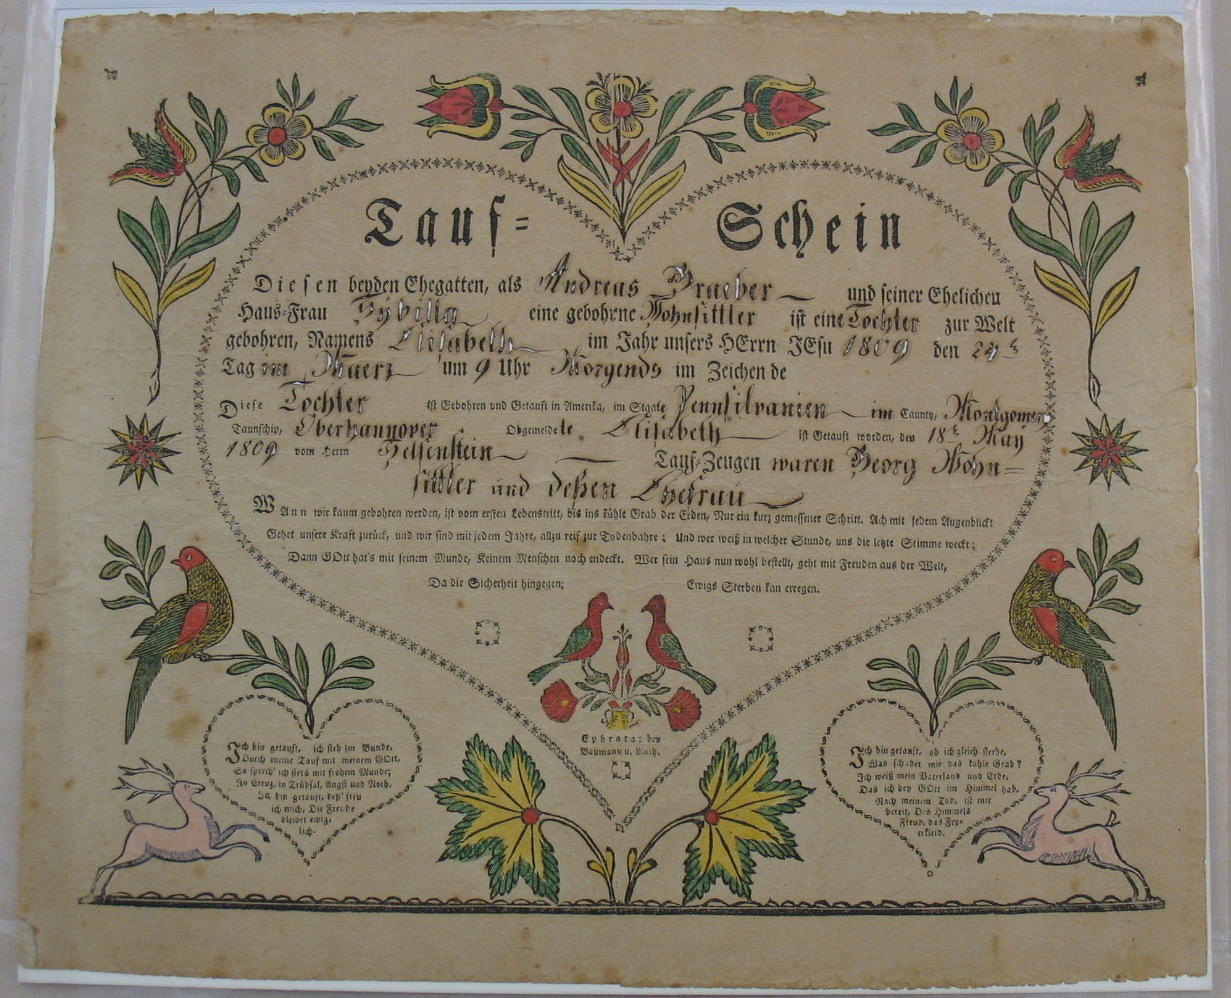 Tauf- Schein
Diesen beyden Ehegatten, als Andreas Graeber und seiner Ehelichen
Haus-Frau Sybilla eine gebohrne Wohnsittler ist eine Tochter zur Welt
gebohren, Namens Elisabeth im Jahr unsers HErrn JEsu 1809 den 24
Tag im Maerz um 9 Uhr Morgends im Zeichen de
Diese Tochter ist Gebohren und Getauft in Amerika, im Staate Pennsilvanien im Caunty, Montgomery
Taunschip, Oberhannover Obgemeldete Elisabeth ist Getauft worden, den 18 May
1809 vom Herrn Helfenstein Tauf-Zeugen waren Georg Wohn=
sittler und deßen Ehefrau
Wann wir kaum gebohren werden, ist vom ersten Lebenstritt, bis ins kühle Grab der Erden, Nur ein kurz gemessener Schritt. Ach mit jedem Augenblick!
Gehet unsere Kraft zurück, und wir sind mit jedem Jahre, allzu reif zur Todenbahre; Und wer weiß in welcher Stunde, uns die letzte Stimme weckt;
Dann GOtt hat's mit seinem Munde, Keinem Menschen noch endeckt. Wer sein Haus nun wohl bestellt, geht mit Freuden aus der Welt,
Da die Sicherheit hingegen; Ewigs Sterben kan erregen.
Ephrata: bey
Baumann u. Ruth.
Ich bin getauft, ich steh im Bunde,
Durch meine Tauf mit meinem GOtt,
So sprech' ich stets mit frohem Munde;
In Creuz, in Trübsal, Angst und Noth.
Ich bin getauft, deß' freu
ich mich, Die Freude
bleibet ewig-
lich.
Ich bin getauft, ob ich gleich sterbe,
Was schadet mir das kühle Grab?
Ich weiß mein Vaterland und Erbe,
Das ich bey GOtt im Himmel hab,
Nach meinem Tod, ist mir
bereit, Des Himmels
Freud, das Fey-
erkleid.